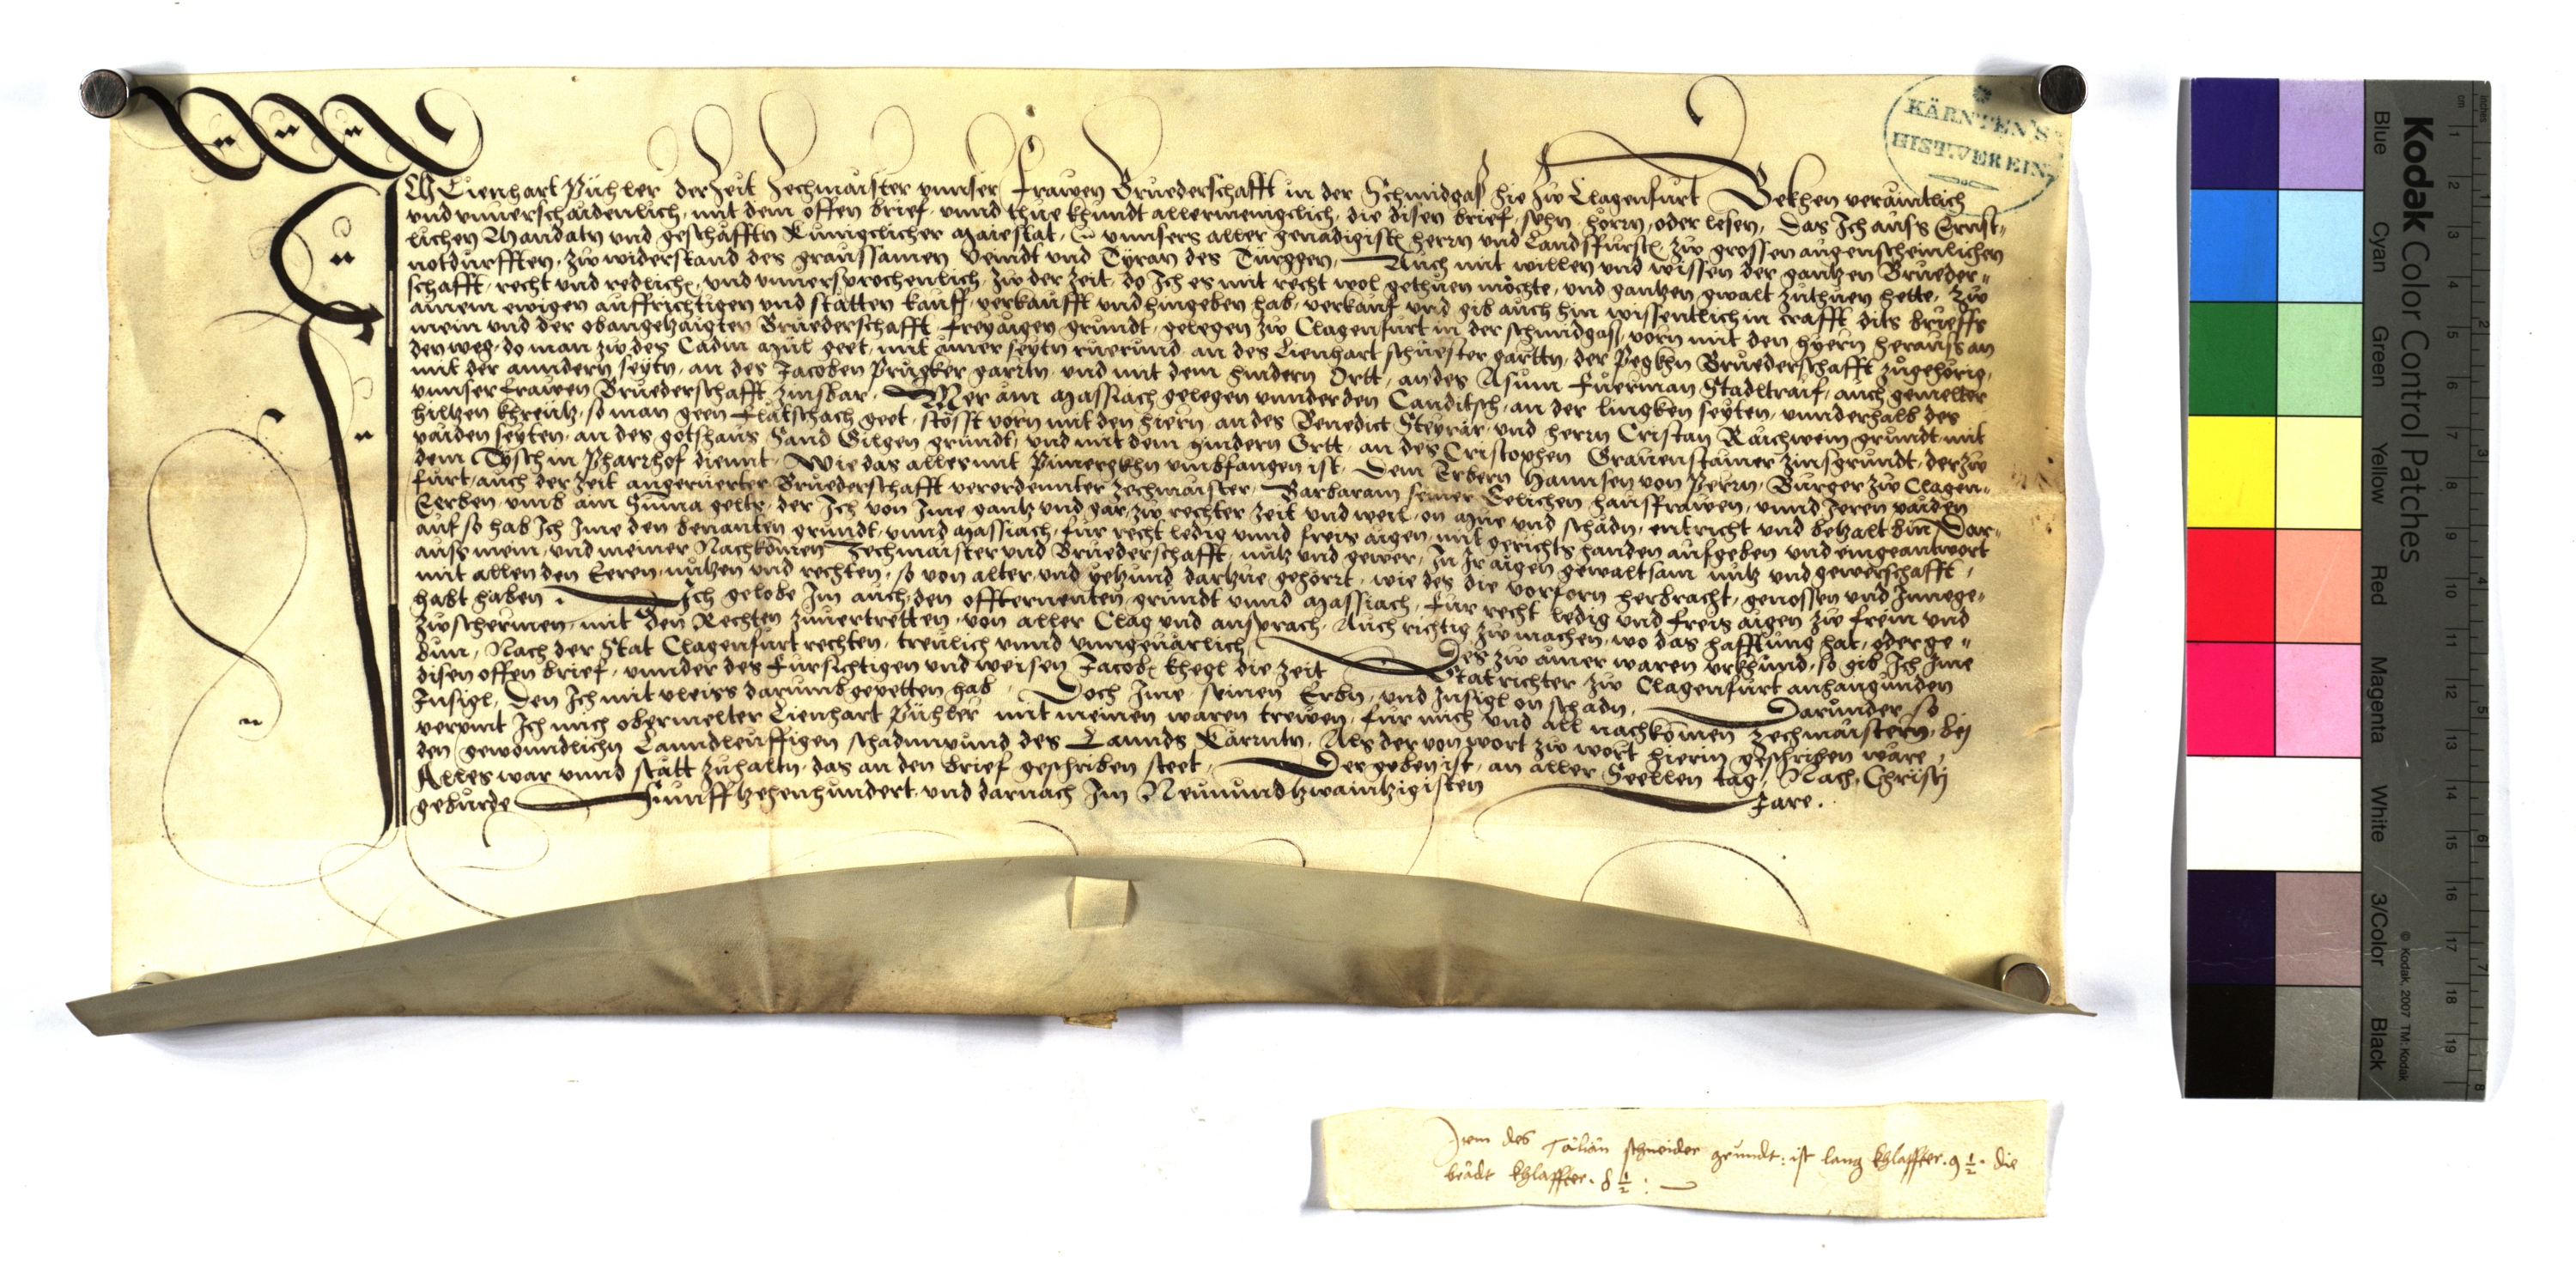 KÄRNTEN'S
HIST. VEREIN
Ich Lienhart Pühler derzeit Zechmaister vnnser Frawen Bruederschafft in der Schmidgass hie zw Clagenfurt Bekhen veraintlich
vnd vnuerschaidenlich, mit dem offen brief, vnnd thue khundt allermenigclich, die disen brief, sehn, hörrn, oder lesen, Das Ich auss Ernst-
lichen Mandatn vnd geschäfftn Kunigclicher Maiestat, vnnsers aller genadigistn herrn vnd Landsfursten zw grossen augenscheinlichen
notdurfften, zw widerstand des graussamen veindt vnd Tyran des Türggen, Auch mit willen vnd wissen der gantzen Brueder-
schafft, recht vnd redlich, vnd vnuersprochenlich, zw der zeit, do Ich es mit recht wol gethuen möchte, vnd gantzen gwalt zuthuen hette, Zw
ainem ewigen auffrichtigen vnd statten kauff, verkaufft vnd hingeben hab, verkauf vnd gib auch hin wissentlich in crafft dits brieffs
mein vnd der obangetzaigten Bruederschafft freyaigen grundt, gelegen zw Clagenfurt in der schmidgass, vorn mit den hyern heraus an
den weg, do man zw des Cadin Mül geet, mit ainer seytn ruerund, an des Lienhart schuester garttn, der Pegkhn Bruederschafft zugehörig,
mit der anndern seytn, an des Jacoben Prugker garttn, vnd mit dem hindern Ortt, an des Asum Fuerman Stadltraif, auch gemelter
vnnser frawen Bruederschafft zinsbar. Mer ain Massiach gelegen vnnder den Canditsch, an der lingken seyten, vnnderhalb des
hiltzen khreutz, so man geen Flätschach geet, stösst vorn mit den hiern, an des Benedict Steyrär, vnd herrn Cristan Raichwein grundt, mit
paiden seyten, an des gotshaus Sand Gilgen grundt, vnd mit dem hindern Ortt, an des Cristophen Grauenstainer zinsgrundt, der zw
dem Tysch in Pharrhof diennt. Wie das alles mit Pimerckhn vmbfangen ist. Dem Erbern Hannsen von Perrn, Burger zw Clagen-
furt, auch der zeit angeruerter Bruederschafft verordennter zechmaister, Barbaram seiner Eelichen hausfrawen, vnnd Jeren paiden
Eerben, vmb ain Suma gelts, der Ich von Ime gantz vnd gar, zw rechter zeit vnd weil, on Mue vnd schadn, entricht vnd betzalt bin Dar-
auf so hab Ich Ime den benanten grundt, vnnd Massiach, für recht ledig vnnd freis aigen, mit gerichts handen aufgeben vnd eingeantwort
auss mein, vnd meiner Nachkomen Zechmaister vnd Bruederschafft, nutz vnd gewer, In Ir aigen gewaltsam nutz vnd gewerschafft,
mit allen den Eeren, nutzen vnd rechten, so von alter, vnd yetzund dartzue gehörrt, wie des die vorfern herbracht, genossen vnd Innege-
habt haben. Ich gelobe Im auch, den offternenten, grundt vnnd Massiach, für recht ledig vnd freis aigen zw frein vnd
zw schermen, mit den Rechten zuuertretten, von aller Clag vnd ansprach, Auch richtig zw machen, wo das hafftung hat, oder ge-
bun, Nach der Stat Clagenfurt rechten, treulich vnnd vngeuärlich, Des zw ainer waren vrkhund, so gib Ich Ime
disen offen brief, vnnder des fürsichtigen vnd weisen Jacob Khegl die zeit Statrichter zw Clagenfurt anhangunden
Insigl, Den Ich mit vleiss darumb gepetten hab, Doch Ime, seinen Erbn, vnd Insigl on schadn, Darunder so
verpint Ich mich obermelter Lienhart Pühler mit meinen waren trewen, für mich vnd all nachkomen zechmaistern, bei
den gewonndlichn Lanndleuffigen schadnpund des Lannds Kärnntn, Als der von wort zw wort hierin geschriben wäre,
Alles war vnnd stätt zuhaltn, das an den brief geschriben steet, Der geben ist, an aller Seellen tag, Nach Christi
geburde Funfftzehenhundert, vnd darnach Im Neunundtzwaintzigisten Jare.
Item des Tälian schneider grundt: ist lang khlaffter . 9 1/2 . die
braidt khlaffter . 8 1/2 :
Kodak Color Control Patches
Blue Cyan Green Yellow Red Magenta White 3/Color Black
© Kodak, 2007 TM: Kodak
cm 1 2 3 4 5 6 7 8 9 10 11 12 13 14 15 16 17 18 19
inches 1 2 3 4 5 6 7 8